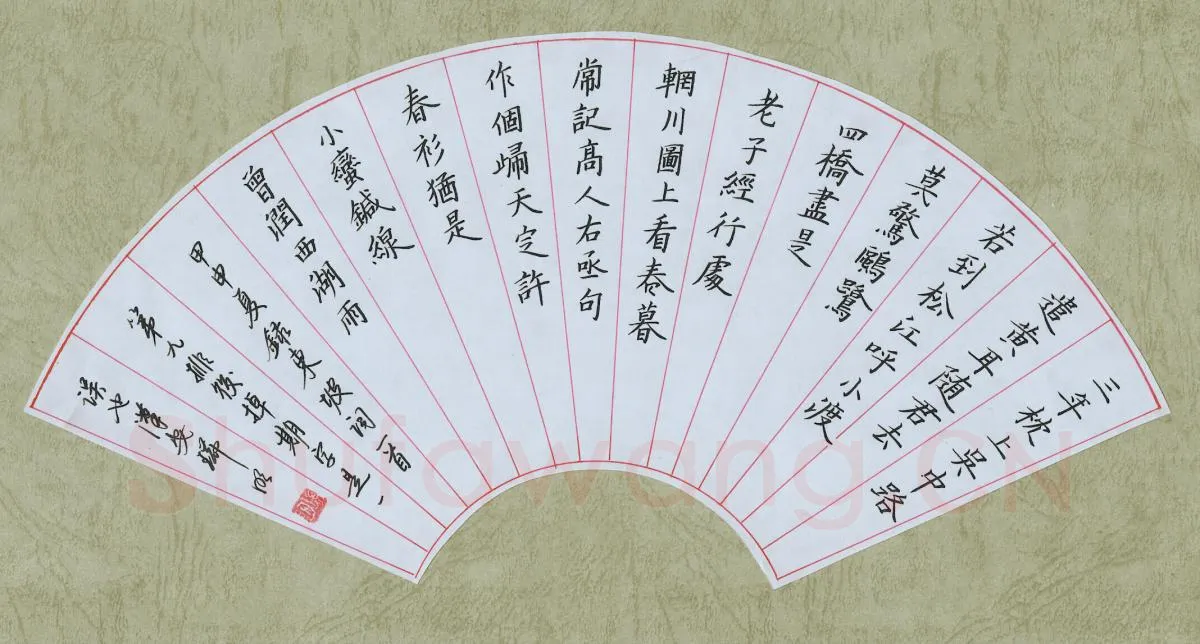 三年枕上吳中路
遣黃耳隨君去
若到松江呼小渡
莫驚鷗鷺
四橋盡是
老子經行處
輞川圖上看春暮
常記高人右丞句
作個歸天定許
春衫猶是
小蠻鍼線
曾潤西湖雨
甲申夏錄東坡詞一首
第九排後掉期字是一
误也
Shufawang.CN